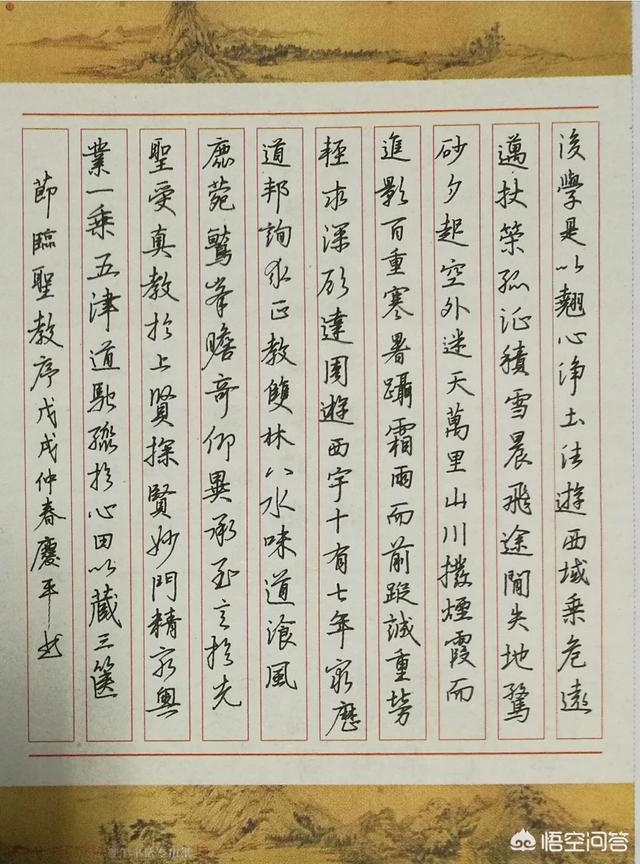 後學是以翹心浄土法遊西域乘危遠
邁杖策孤征積雪晨飛途間失地驚
砂夕起空外迷天萬里山川撥煙霞而
進影百重寒暑躡霜雨而前蹤誠重勞
輕求深願達周遊西宇十有七年窮歷
道邦詢求正教雙林八水味道飡風
鹿菀鷲峯瞻奇仰異承至言於先
聖受真教於上賢探賢妙門精窮奧
業一乘五津道馳驟於心田以藏三篋
節臨聖教序戊戌仲春慶平書
悟空问答